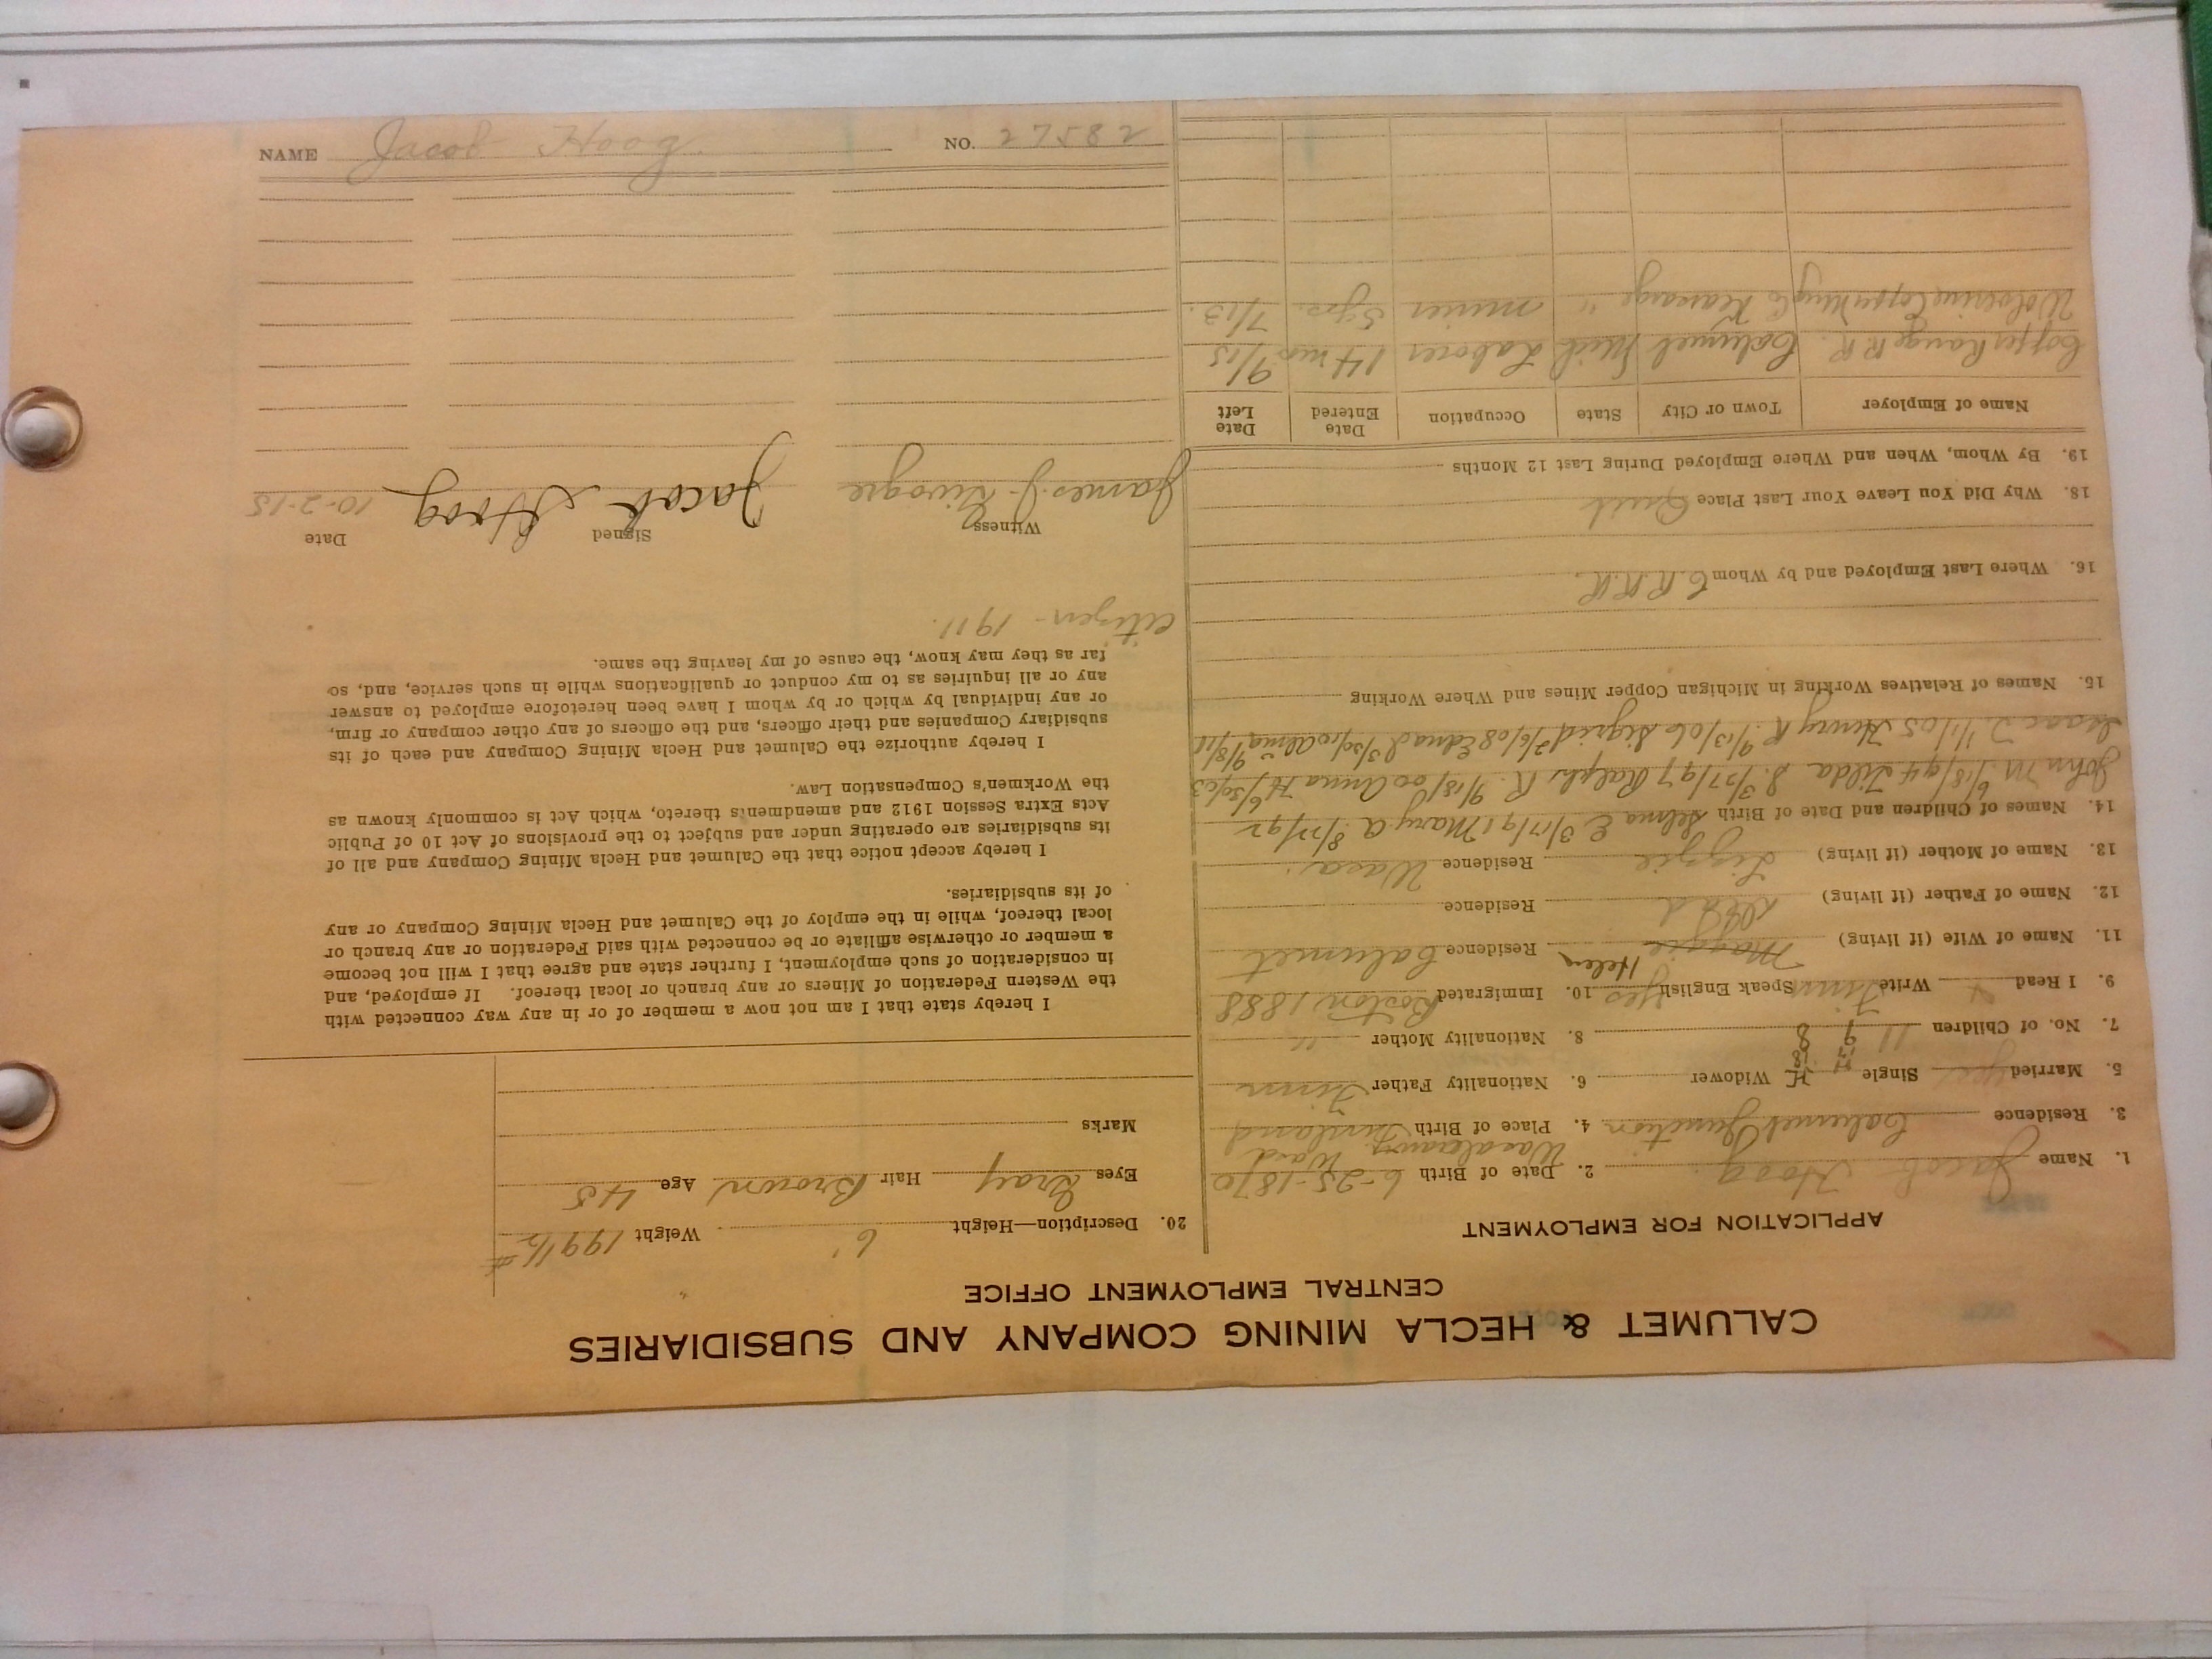 CALUMET & HECLA MINING COMPANY AND SUBSIDIARIES
CENTRAL EMPLOYMENT OFFICE
APPLICATION FOR EMPLOYMENT
1. Name Jacob Hoog. 2. Date of Birth 6-25-1870
3. Residence Calumet Junction 4. Place of Birth Finland
5. Married yes Single Widower 6. Nationality Father Finn
7. No. of Children 11 9 8 8. Nationality Mother "
9. I Read Write Finn Speak English Yes 10. Immigrated Boston 1888
11. Name of Wife (if living) Maggie Helen Residence Calumet
12. Name of Father (if living) Dead Residence
13. Name of Mother (if living) Lizzie Residence Wasa.
14. Names of Children and Date of Birth Selma E 3/17/91 Mary A. 8/27/92
John M. 6/18/94 Tilda S. 3/27/97 Ralph R. 9/18/00 Anna H. 6/30/03
Isaac I. 1/1/05 Henry R. 9/13/06 Sigrid 7/6/08 Edna L 3/30/10 Alma 9/8/11
15. Names of Relatives Working in Michigan Copper Mines and Where Working
16. Where Last Employed and by Whom C.R.R.R.
18. Why Did You Leave Your Last Place Quit
19. By Whom, When and Where Employed During Last 12 Months
Name of Employer Town or City State Occupation Date Entered Date Left
Copper Range R.R. Calumet Mich Laborer 14 mos 9/15
Wolverine Copper Mng Co Kearsarge " miner 5 yrs. 7/13.
20. Description—Height 6' Weight 199 1/2 #
Eyes Gray Hair Brown Age 45
Marks
I hereby state that I am not now a member of or in any way connected with
the Western Federation of Miners or any branch or local thereof. If employed, and
in consideration of such employment, I further state and agree that I will not become
a member or otherwise affiliate or be connected with said Federation or any branch or
local thereof, while in the employ of the Calumet and Hecla Mining Company or any
of its subsidiaries.
I hereby accept notice that the Calumet and Hecla Mining Company and all of
its subsidiaries are operating under and subject to the provisions of Act 10 of Public
Acts Extra Session 1912 and amendments thereto, which Act is commonly known as
the Workmen's Compensation Law.
I hereby authorize the Calumet and Hecla Mining Company and each of its
subsidiary Companies and their officers, and the officers of any other company or firm,
or any individual by which or by whom I have been heretofore employed to answer
any or all inquiries as to my conduct or qualifications while in such service, and, so
far as they may know, the cause of my leaving the same.
Citizen - 1911.
Witness Signed Date
James J. Jacob Hoog 10-2-15
NAME Jacob Hoog. NO. 27582